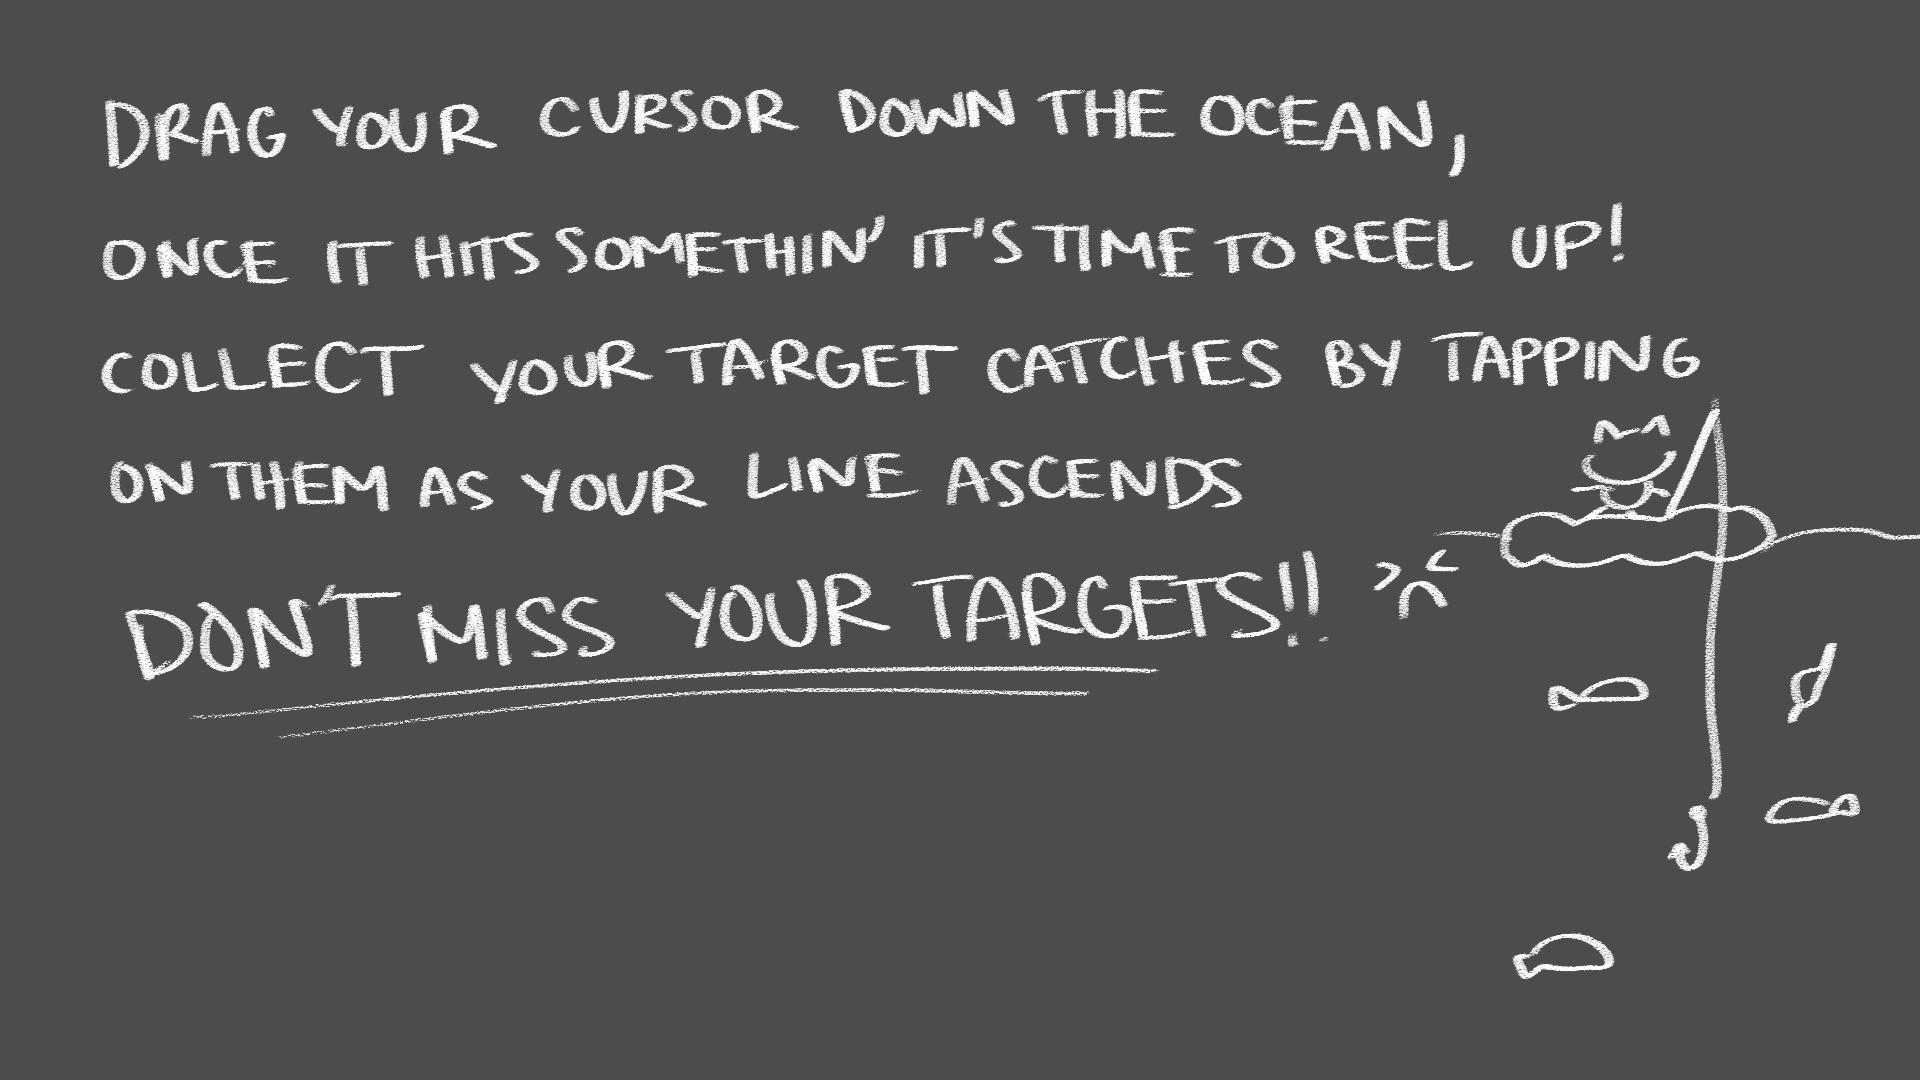 DRAG YOUR CURSOR DOWN THE OCEAN,
ONCE IT HITS SOMETHIN' IT'S TIME TO REEL UP!
COLLECT YOUR TARGET CATCHES BY TAPPING
ON THEM AS YOUR LINE ASCENDS
DON'T MISS YOUR TARGETS!!